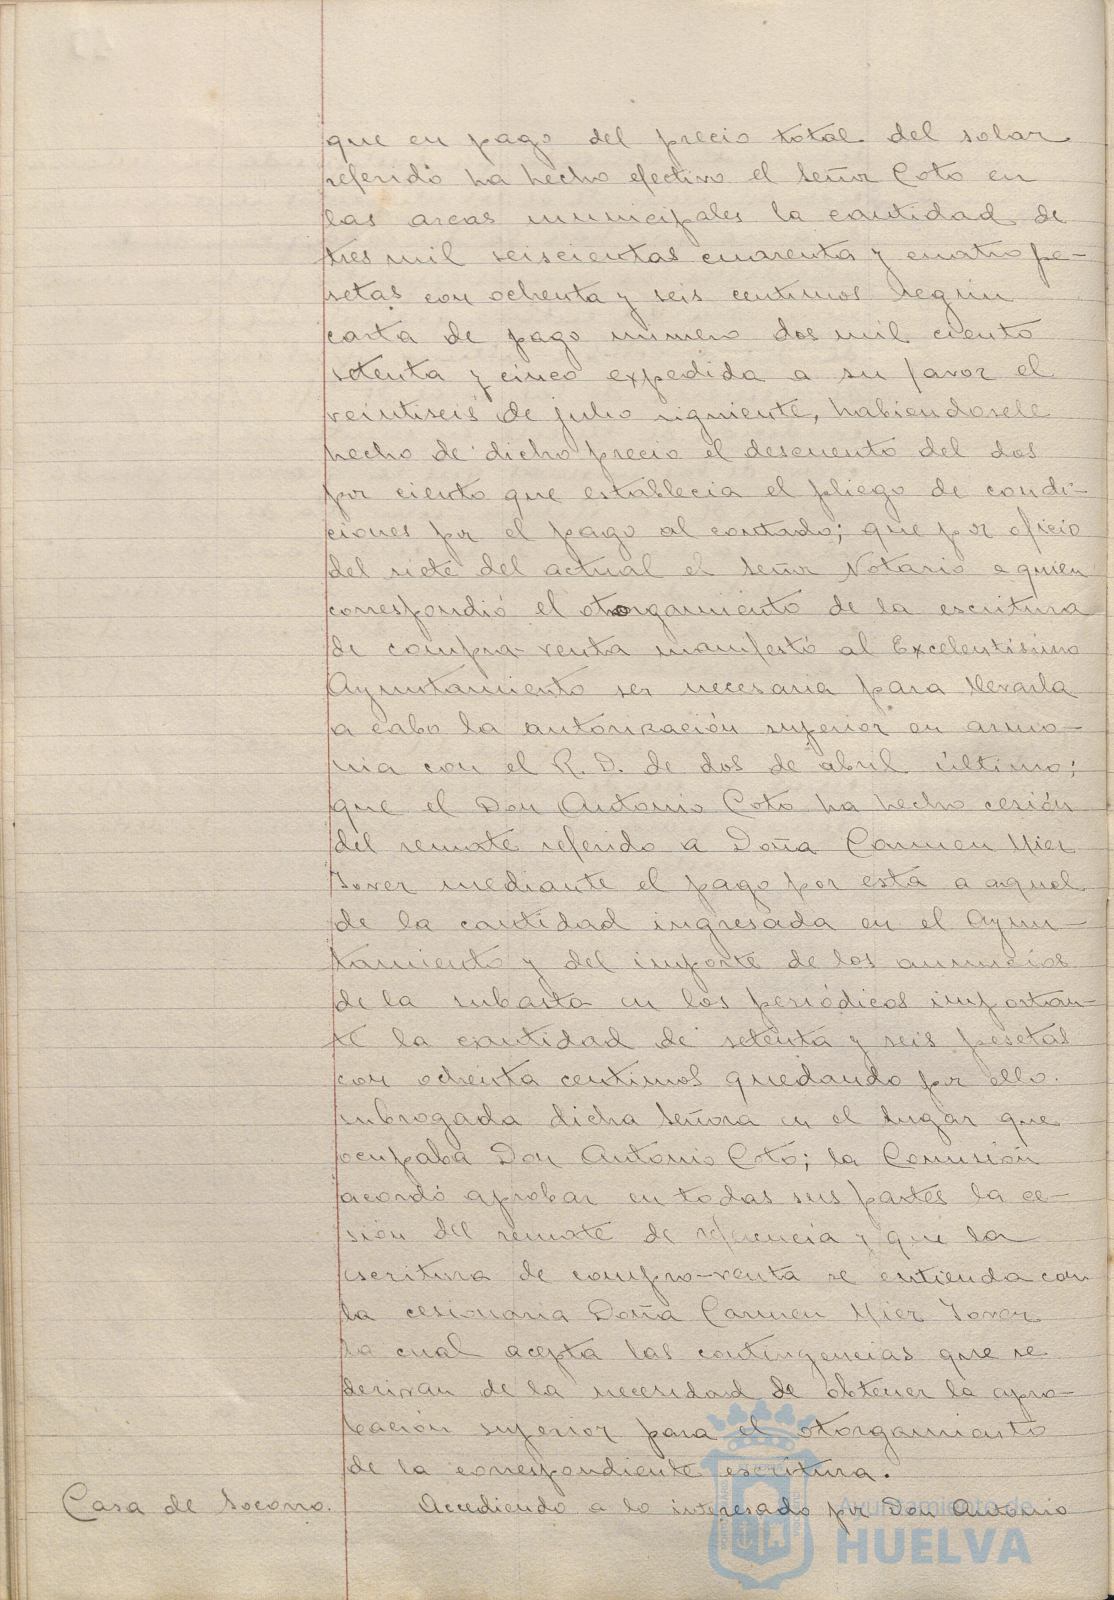 que en pago del precio total del solar
referido ha hecho efectivo el Señor Coto en
las arcas municipales la cantidad de
tres mil seiscientas cuarenta y cuatro pe-
setas con ochenta y seis centimos según
carta de pago número dos mil ciento
setenta y cinco expedida a su favor el
veintiseis de julio siguiente, habiendosele
hecho de dicho precio el descuento del dos
por ciento que establecia el pliego de condi-
ciones por el pago al contado; que por oficio
del siete del actual el Señor Notario a quien
correspondió el otorgamiento de la escritura
de compra-venta manifestó al Excelentisimo
Ayuntamiento ser necesaria para llevarla
a cabo la autorización superior en armo-
nia con el R. D. de dos de abril último;
que el Don Antonio Coto ha hecho cesión
del remate referido a Doña Carmen Mier
Tover mediante el pago por está a aquel
de la cantidad ingresada en el Ayun-
tamiento y del importe de los anuncios
de la subasta en los periódicos importan-
te la cantidad de setenta y seis pesetas
con ochenta centimos quedando por ello
subrogada dicha Señora en el lugar que
ocupaba Don Antonio Coto; la Comisión
acordó aprobar en todas sus partes la ce-
sión del remate de referencia y que la
escritura de compra-venta se entienda con
la cesionaria Doña Carmen Mier Tover
la cual acepta las contingencias que se
derivan de la necesidad de obtener la apro-
bación superior para el otorgamiento
de la correspondiente escritura.
Casa de Socorro. Accediendo a lo interesado por Don Antonio
Ayuntamiento de
HUELVA